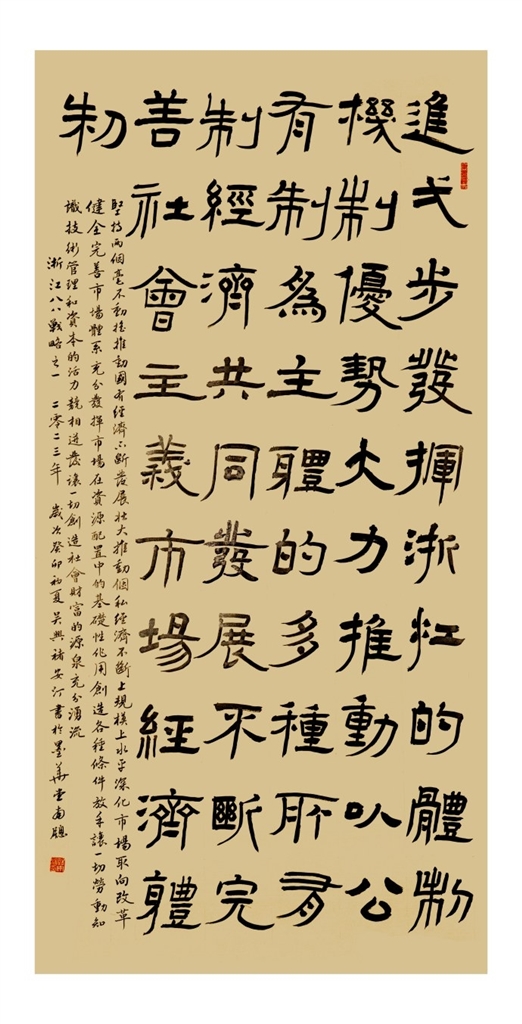 進弌步發揮浙江的體制
機制優勢大力推動以公
有制爲主體的多種所有
制經濟共同發展不斷完
善社會主義市場經濟體
制
堅持兩個毫不動搖推動國有經濟不斷發展壯大推動個私經濟不斷上規模上水平深化市場取向改革
健全完善市場體系充分發揮市場在資源配置中的基礎性作用創造各種條件放手讓一切勞動知
識技術管理和資本的活力競相迸發讓一切創造社會財富的源泉充分湧流
浙江八八戰略之一 二零二三年 歲次癸卯初夏吳興褚安汀書於墨華堂南牕